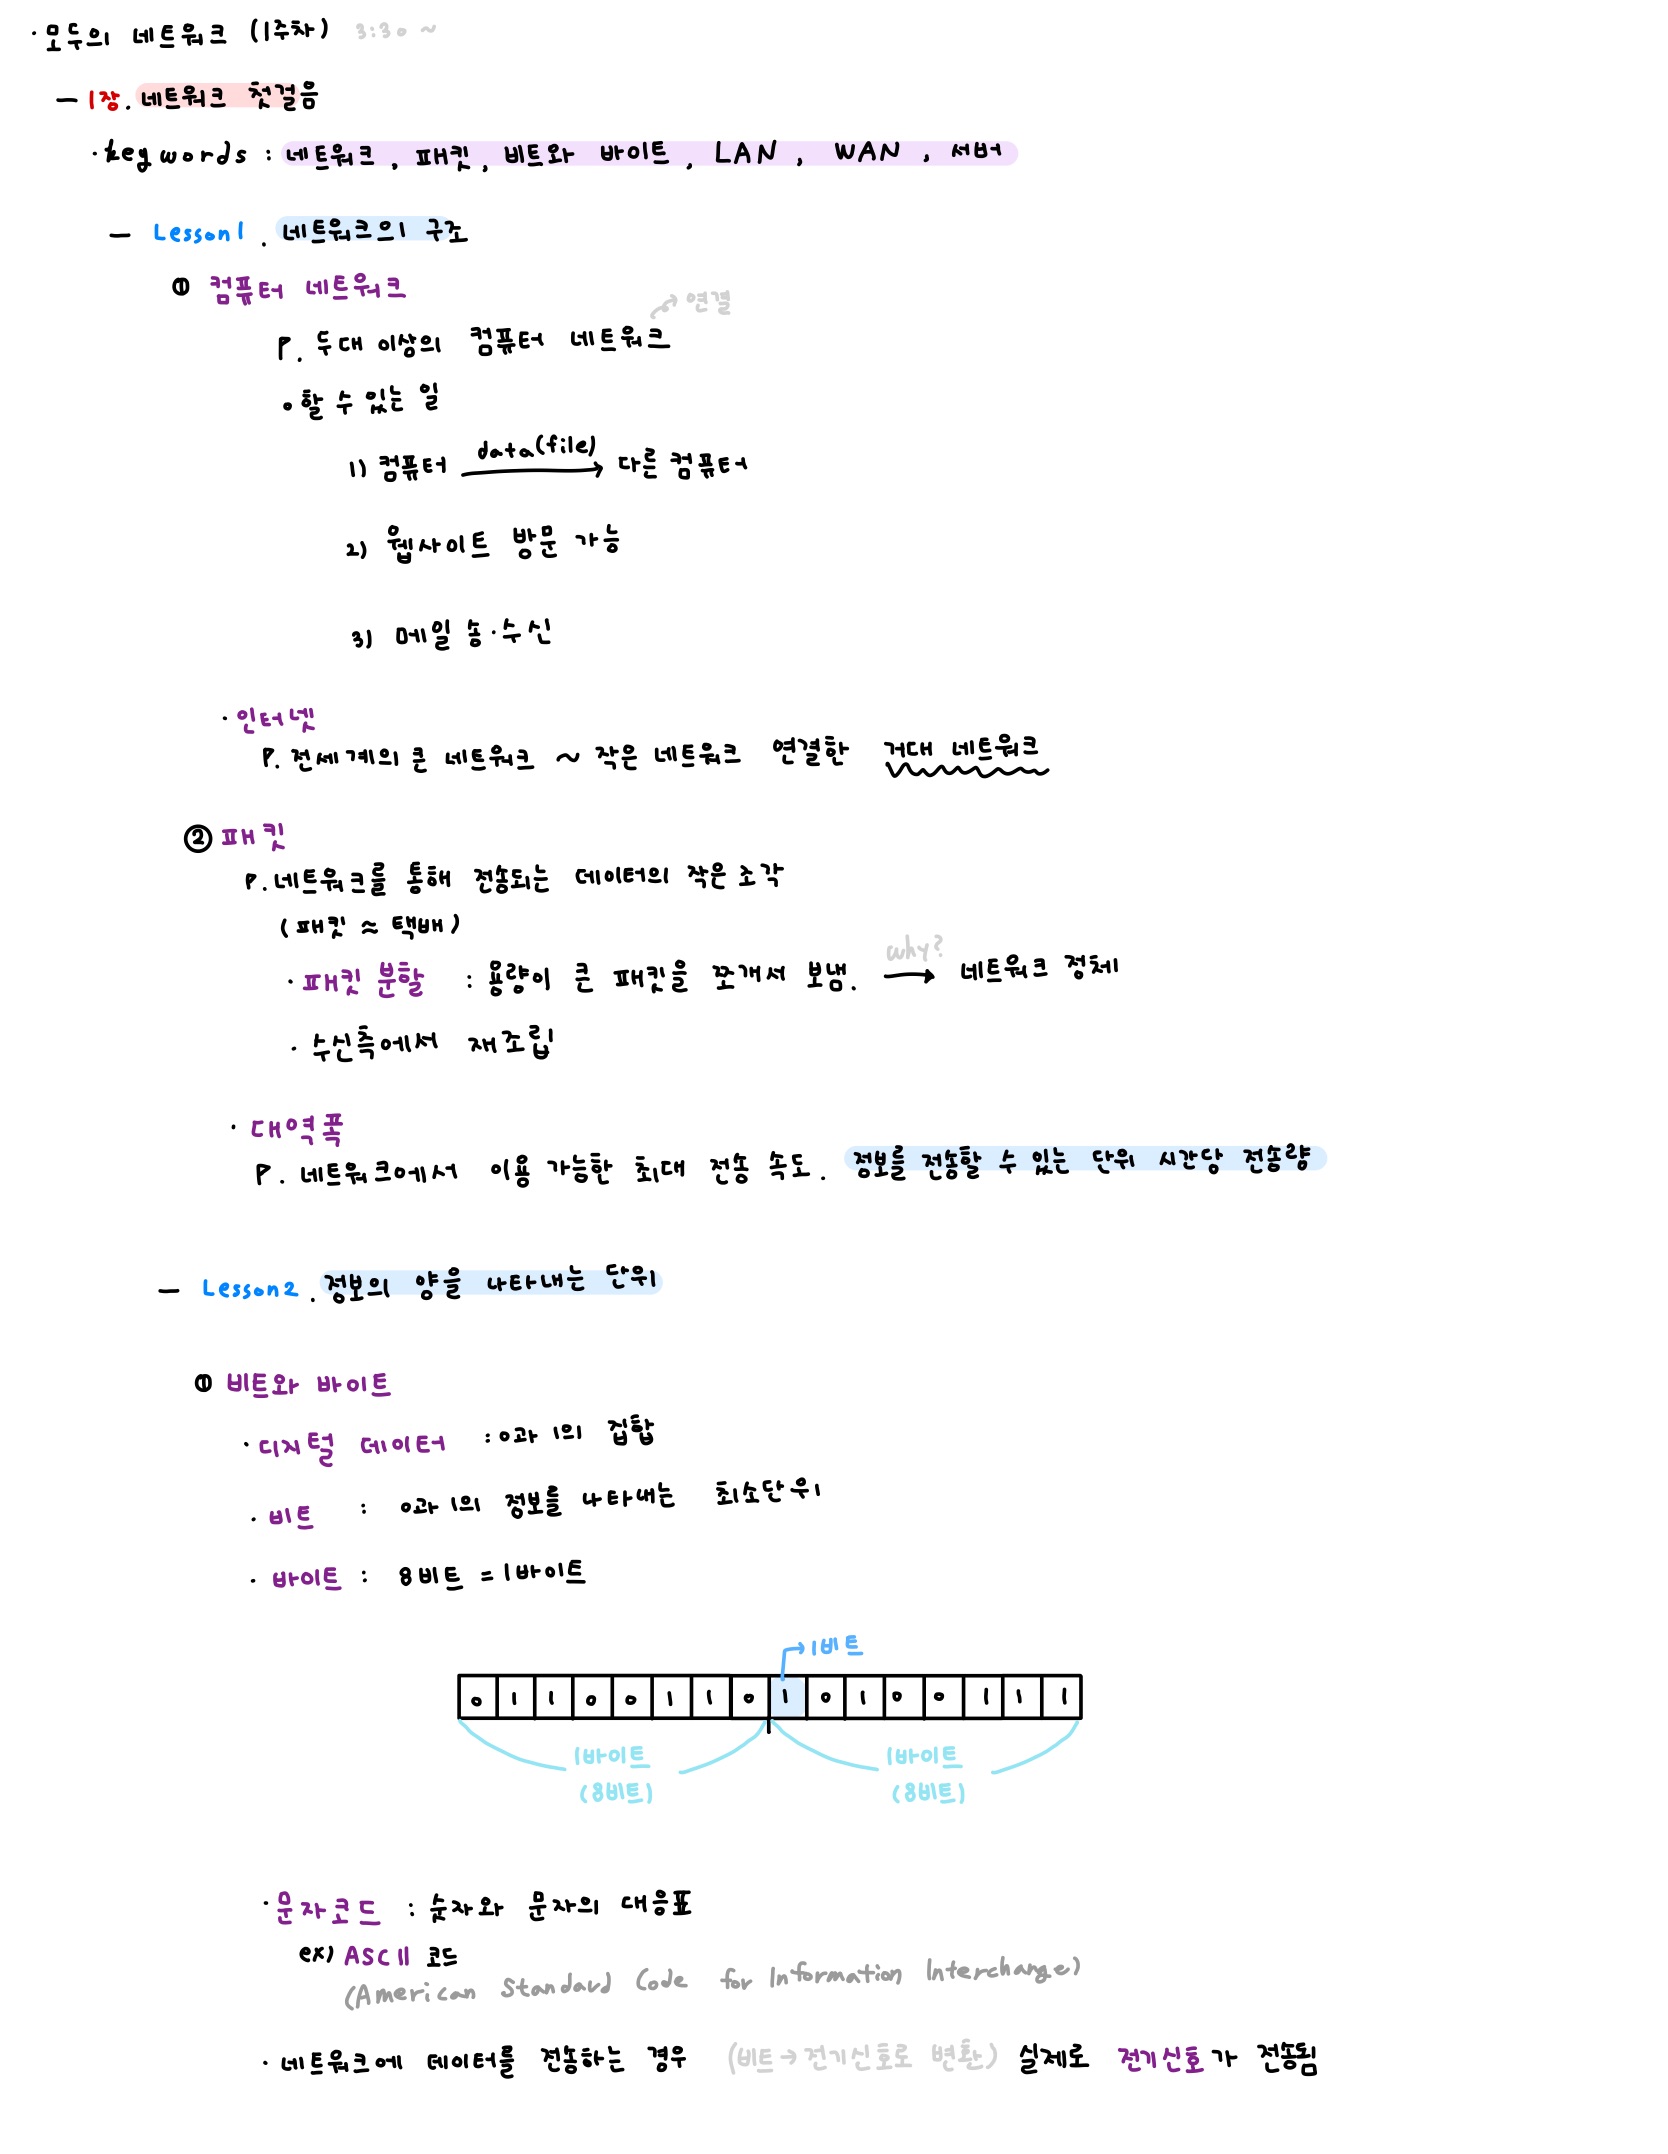 · 모두의 네트워크 (1주차) 3:30 ~
- 1장. 네트워크 첫걸음
· keywords : 네트워크, 패킷, 비트와 바이트, LAN, WAN, 서버
- Lesson1. 네트워크의 구조
① 컴퓨터 네트워크
→ 연결
P. 두대 이상의 컴퓨터 네트워크
∘ 할 수 있는 일
data(file)
1) 컴퓨터 → 다른 컴퓨터
2) 웹사이트 방문 가능
3) 메일 송·수신
· 인터넷
P. 전세계의 큰 네트워크 ~ 작은 네트워크 연결한 거대 네트워크
② 패킷
P. 네트워크를 통해 전송되는 데이터의 작은 조각
(패킷 ≈ 택배)
why?
· 패킷 분할 : 용량이 큰 패킷을 쪼개서 보냄. → 네트워크 정체
· 수신측에서 재조립
· 대역폭
P. 네트워크에서 이용 가능한 최대 전송 속도. 정보를 전송할 수 있는 단위 시간당 전송량
- Lesson2. 정보의 양을 나타내는 단위
① 비트와 바이트
· 디지털 데이터 : 0과 1의 집합
· 비트 : 0과 1의 정보를 나타내는 최소단위
· 바이트 : 8비트 = 1바이트
→ 1비트
0 1 1 0 0 1 1 0 1 0 1 0 0 1 1 1
1바이트 1바이트
(8비트) (8비트)
· 문자코드 : 숫자와 문자의 대응표
ex) ASCII 코드
(American Standard Code for Information Interchange)
· 네트워크에 데이터를 전송하는 경우 (비트→전기신호로 변환) 실제로 전기신호가 전송됨